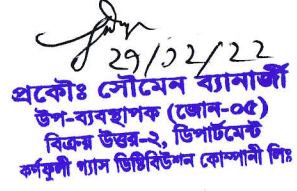 29/02/22
প্রকৌঃ সৌমেন ব্যানার্জী
উপ-ব্যবস্থাপক (জোন-০৫)
বিক্রয় উত্তর-২, ডিপার্টমেন্ট
কর্ণফুলী গ্যাস ডিষ্ট্রিবিউশন কোম্পানী লিঃ